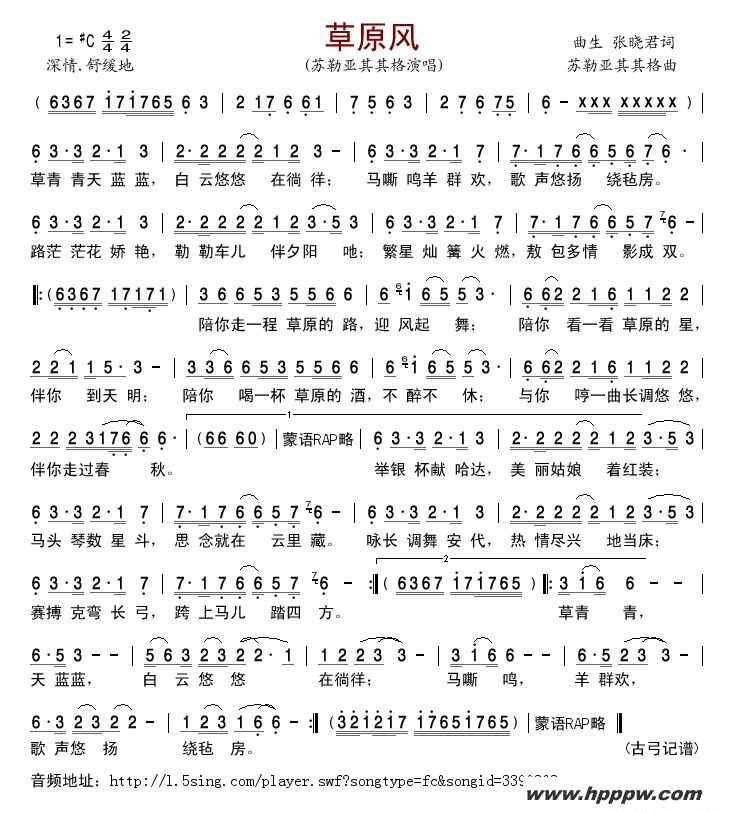 草原风
1=♯C 4/4 2/4
曲生 张晓君词
深情.舒缓地
(苏勒亚其其格演唱)
苏勒亚其其格曲
( 6367 171765 6 3 | 2 17 6 61 | 7 5 6 3 | 2 7 6 75 | 6 - xxx xxxxx |
6 3·3 2·1 3 | 2·2 2 2 2 2 1 2 3 - | 6 3·3 2·1 7 | 7·1 7 6 6 5 6 7 6 · |
草青 青天 蓝蓝，白 云悠悠 在徜 徉； 马嘶 鸣羊 群 欢，歌 声悠扬 绕毡房。
6 3·3 2·1 3 | 2·2 2 2 2 1 2 3·5 3 | 6 3·3 2·1 7 | 7·1 7 6 6 5 7 7 6 - |
路茫 茫花 娇 艳， 勒 勒车儿 伴夕阳 吔；繁星 灿篝 火 燃，敖 包多情 影成 双。
‖:(6367 17171) | 3 6 6 5 3 5 5 5 6 6 | 6 6 1 6 5 5 3 · | 6 6 2 2 1 6 1 1 2 2 |
陪你走一程 草原的 路，迎 风起 舞； 陪你 看一看 草原的 星，
2 2 1 1 5 · 3 - | 3 3 6 6 5 3 5 5 6 6 | 6 6 1 6 5 5 3 · | 6 6 2 2 1 6 1 1 2 2 |
伴你 到天 明； 陪你 喝一杯 草原的 酒，不 醉不 休； 与你 哼一曲长调悠 悠，
1
2 2 2 3 1 7 6 6 6 · | (66 60) | 蒙语RAP略 | 6 3·3 2·1 3 | 2·2 2 2 2 1 2 3·5 3 |
伴你走过春 秋。 举银 杯献 哈达，美 丽姑娘 着红装；
6 3·3 2·1 7 | 7·1 7 6 6 5 7 7 6 - | 6 3·3 2·1 3 | 2·2 2 2 2 1 2 3·5 3 |
马头 琴数 星 斗， 思 念就在 云里 藏。 咏长 调舞 安 代，热 情尽兴 地当床；
2
6 3·3 2·1 7 | 7·1 7 6 6 5 7 7 6 - :‖ ( 6367 171765 )‖: 3 1 6 6 |
赛搏 克弯 长 弓， 跨 上马儿 踏四 方。 草青 青，
6·5 3 - | 5 6 3 2 3 2 2·1 | 1 2 2 3 3 - | 3 6 6 - | 6·5 3 3 |
天 蓝蓝， 白 云 悠 悠 在徜徉； 马嘶 鸣， 羊 群欢，
6·3 2 3 2 2 - | 1 2 3 1 6 6 - :‖ (321217 17651765) | 蒙语RAP略 ‖
歌 声悠 扬 绕毡 房。 (古弓记谱)
音频地址：http://1.5sing.com/player.swf?songtype=fc&songid=339
www.hpppw.com